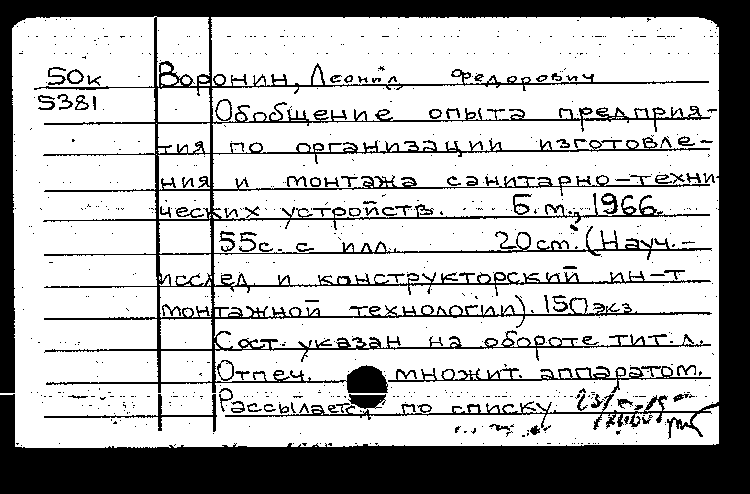 50к
5381
Воронин, Леонид Федорович
Обобщение опыта предприя-
тия по организации изготовле-
ния и монтажа санитарно-техни-
ческих устройств. Б.м., 1966.
55с. с илл. 20см. (Науч.-
исслед и конструкторский ин-т
монтажной технологии). 150экз.
Сост. указан на обороте тит. л.
Отпеч. множит. аппаратом.
Рассылается по списку.